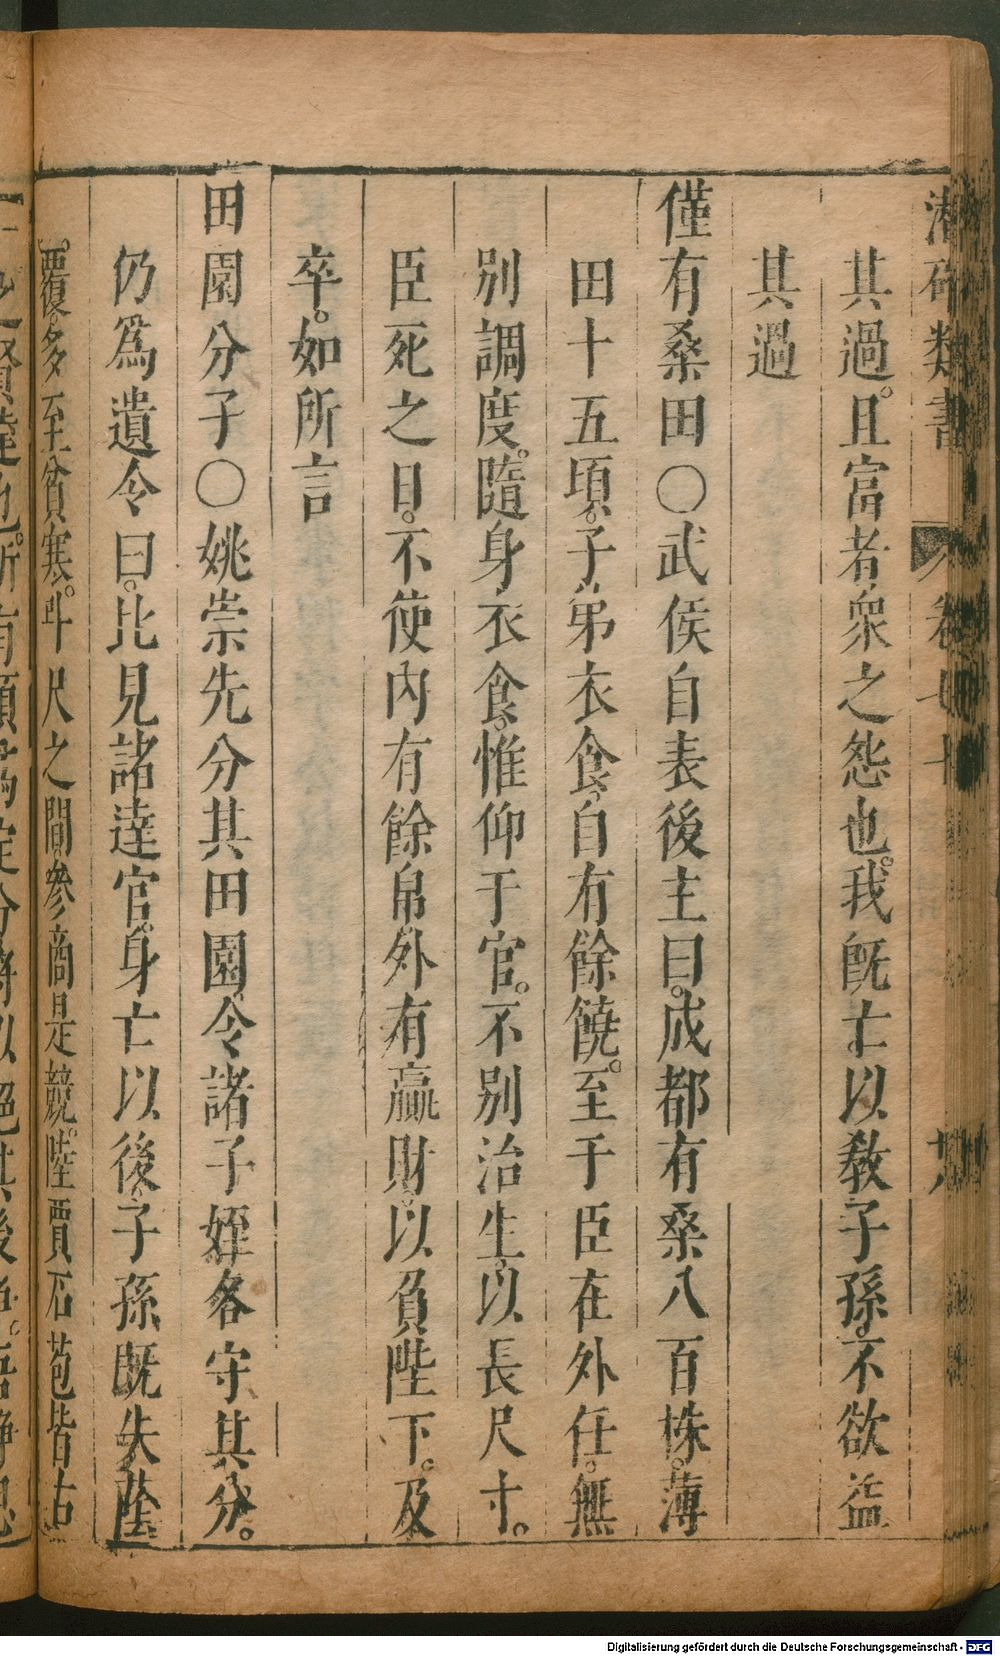 潛確類書 卷七十 十八
其過。且富者衆之怨也。我旣亡以敎子孫。不欲益
其過
僅有桑田〇武侯自表後主曰。成都有桑八百株。薄
田十五頃。子弟衣食。自有餘饒。至于臣在外任。無
別調度。隨身衣食。惟仰于官。不別治生。以長尺寸。
臣死之日。不使內有餘帛。外有贏財。以負陛下。及
卒。如所言
田園分子〇姚崇先分其田園。令諸子姪各守其分。
仍爲遺令曰。比見諸達官。身亡以後。子孫既失蔭
覆。多至貧寒。斗尺之間。參商是競。陸賈石苞皆古
Digitalisierung gefördert durch die Deutsche Forschungsgemeinschaft - DFG